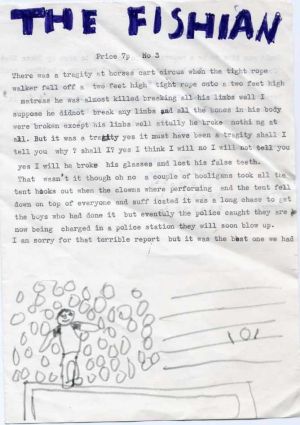 THE FISHIAN
Price 7p No 3
There was a tragity at horses cart circus when the tight rope
walker fell off a two feet high tight rope onto a two feet high
matress he was almost killed breaking all his limbs well I
suppose he didnot break any limbs and all the bones in his body
were broken except his limbs well attully he broke nothing at
all. But it was a tragity yes it must have been a tragity shall I
tell you why ? shall I? yes I think I will no I will not tell you
yes I will he broke his glasses and lost his false teeth.
That wasn't it though oh no a couple of hooligans took all the
tent hooks out when the clowns where performing and the tent fell
down on top of everyone and suff icated it was a long chase to get
the boys who had done it but eventuly the police caught they are
now being charged in a police station they will soon blow up.
I am sorry for that terrible report but it was the best one we had